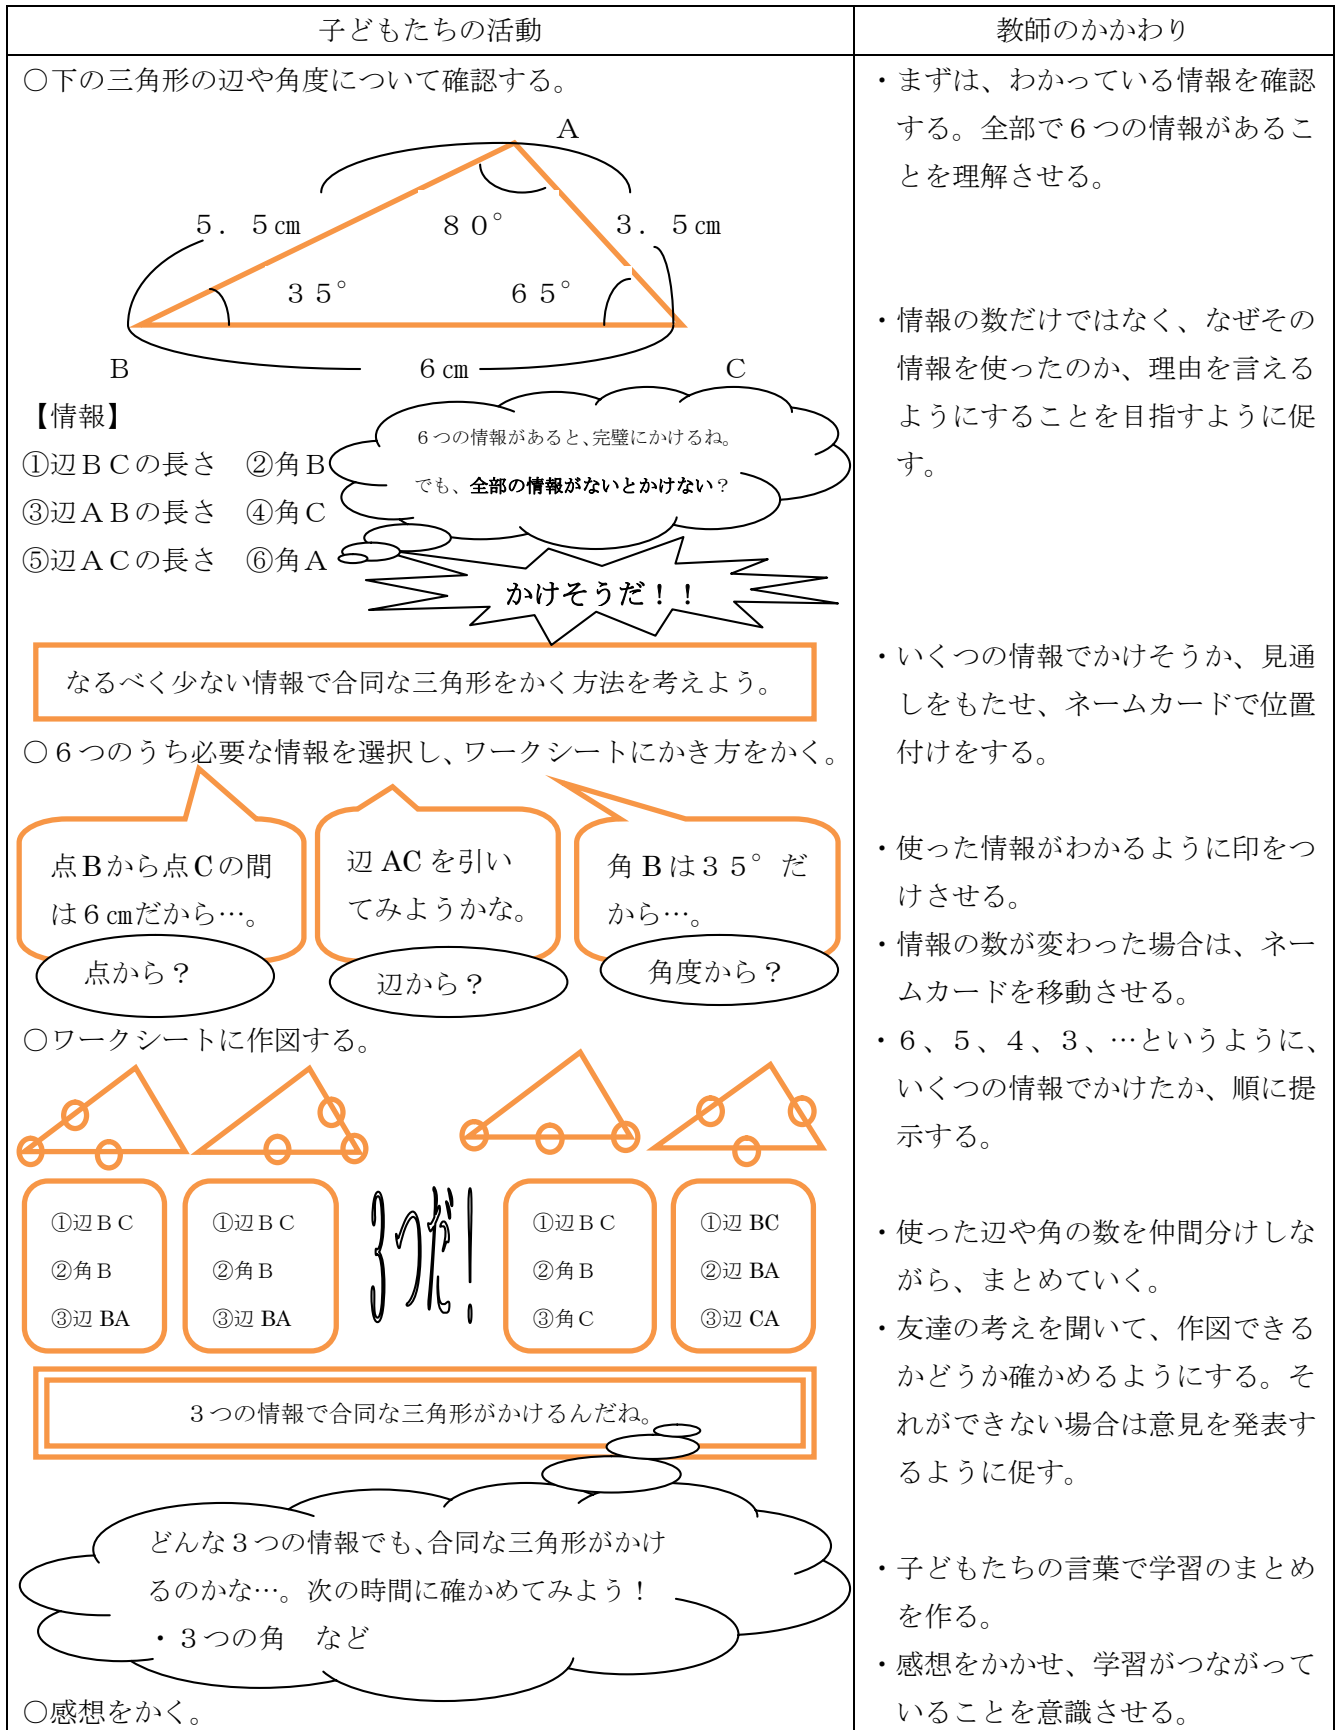 子どもたちの活動
教師のかかわり
○下の三角形の辺や角度について確認する。
A
5．5㎝
80°
3．5㎝
35°
65°
B
6㎝
C
【情報】
①辺ＢＣの長さ　②角Ｂ
③辺ＡＢの長さ　④角Ｃ
⑤辺ＡＣの長さ　⑥角Ａ
６つの情報があると、完璧にかけるね。
でも、全部の情報がないとかけない？
かけそうだ！！
なるべく少ない情報で合同な三角形をかく方法を考えよう。
○６つのうち必要な情報を選択し、ワークシートにかき方をかく。
点Bから点Cの間
は６㎝だから…。
点から？
辺 AC を引い
てみようかな。
辺から？
角 B は３５°だ
から…。
角度から？
○ワークシートに作図する。
①辺ＢＣ
②角Ｂ
③辺 BA
①辺ＢＣ
②角Ｂ
③辺 BA
3つだ！
①辺ＢＣ
②角Ｂ
③角Ｃ
①辺 BC
②辺 BA
③辺 CA
３つの情報で合同な三角形がかけるんだね。
どんな３つの情報でも、合同な三角形がかけ
るのかな…。次の時間に確かめてみよう！
・３つの角　など
○感想をかく。
・まずは、わかっている情報を確認
する。全部で６つの情報があるこ
とを理解させる。
・情報の数だけではなく、なぜその
情報を使ったのか、理由を言える
ようにすることを目指すように促
す。
・いくつの情報でかけそうか、見通
しをもたせ、ネームカードで位置
付けをする。
・使った情報がわかるように印をつ
けさせる。
・情報の数が変わった場合は、ネー
ムカードを移動させる。
・６、５、４、３、…というように、
いくつの情報でかけたか、順に提
示する。
・使った辺や角の数を仲間分けしな
がら、まとめていく。
・友達の考えを聞いて、作図できる
かどうか確かめるようにする。そ
れができない場合は意見を発表す
るように促す。
・子どもたちの言葉で学習のまとめ
を作る。
・感想をかかせ、学習がつながって
いることを意識させる。